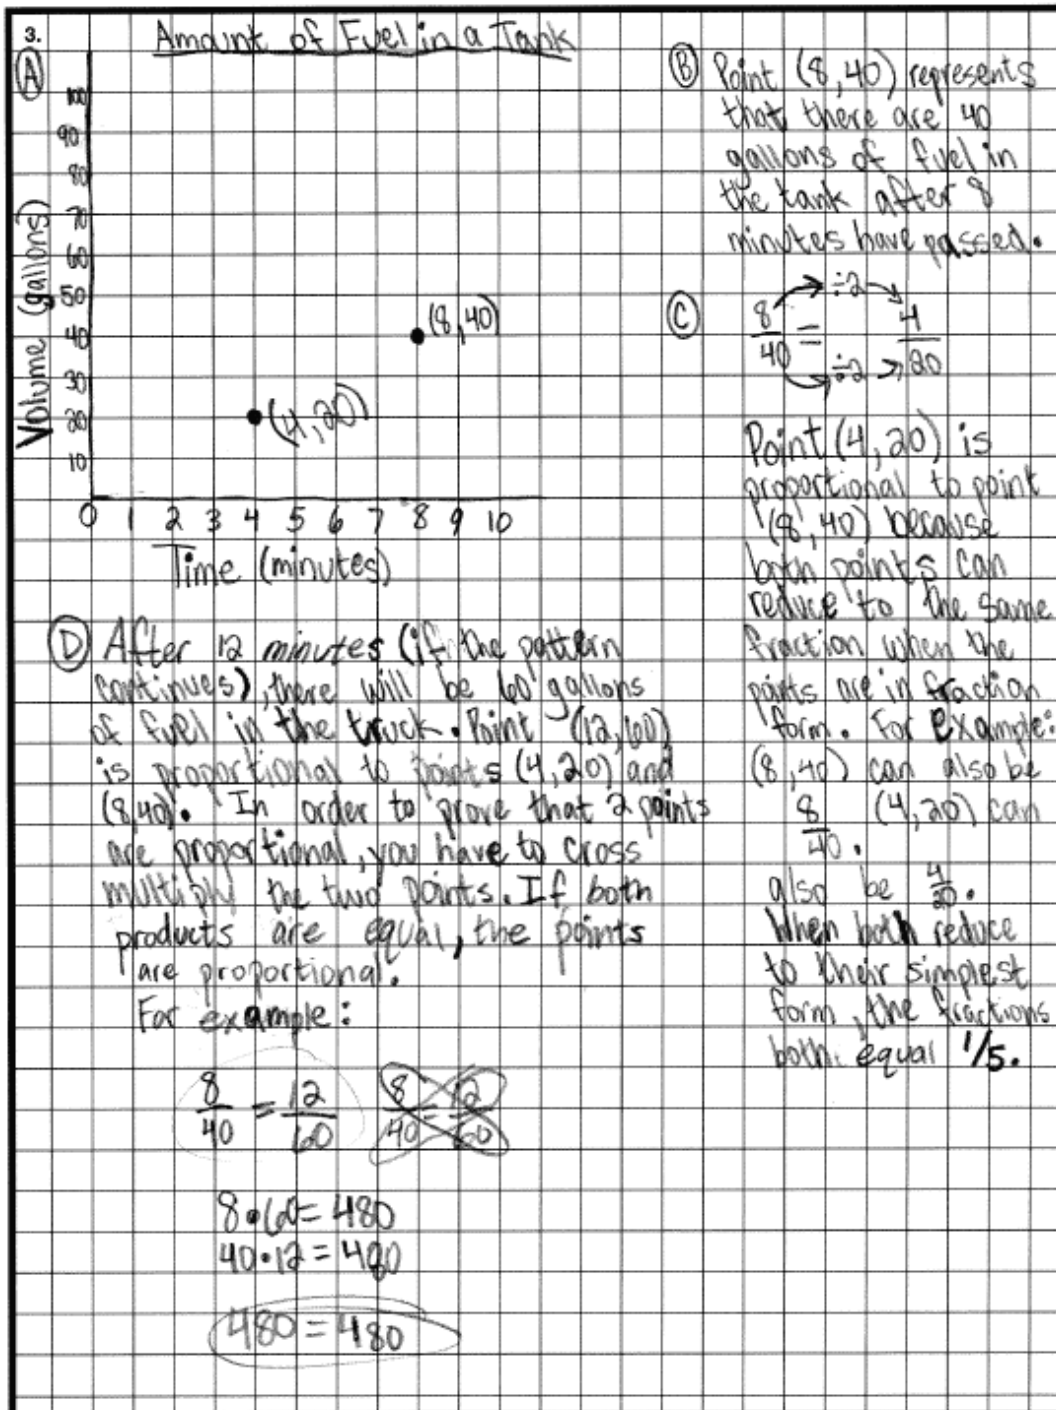 3.
Amount of Fuel in a Tank
Ⓐ
Volume (gallons)
100
90
80
70
60
50
40
30
20
10
(8,40)
(4,20)
0 1 2 3 4 5 6 7 8 9 10
Time (minutes)
Ⓑ Point (8,40) represents
that there are 40
gallons of fuel in
the tank after 8
minutes have passed.
Ⓒ
÷2
8/40 = 4/20
÷2
Point (4,20) is
proportional to point
(8,40) because
both points can
reduce to the same
fraction when the
points are in fraction
form. For example:
(8,40) can also be
8/40. (4,20) can
also be 4/20.
When both reduce
to their simplest
form, the fractions
both equal 1/5.
Ⓓ After 12 minutes (if the pattern
continues), there will be 60 gallons
of fuel in the truck. Point (12,60)
is proportional to points (4,20) and
(8,40). In order to prove that 2 points
are proportional, you have to cross
multiply the two points. If both
products are equal, the points
are proportional.
For example:
8/40 = 12/60 8/40 = 12/60
8•60=480
40•12=480
480=480